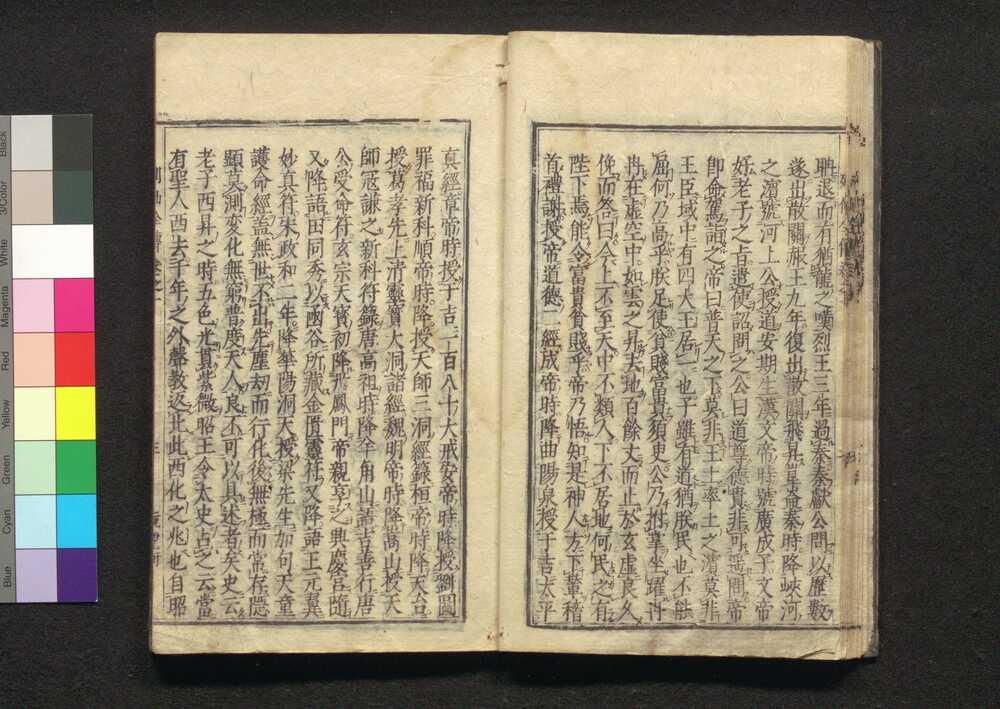 聃退而有猶龍之嘆烈王三年過秦秦獻公問以歷數
遂出散關赧王九年復出散關飛昇崑崙秦時降峽河
之濱號河上公授道安期生漢文帝時號廣成子文帝
好老子之旨遣使詔問之公曰道尊德貴非可遥問帝
即命駕詣之帝曰普天之下莫非王土率土之濱莫非
王臣域中有四大王居一也子雖有道猶朕民也不能
屈何乃高乎朕足使貧賤富貴須臾公乃拊掌坐躍冉
冉在虛空中如雲之昇去地百餘丈而止於玄虛良久
俛而答曰今上不至天中不類人下不居地何民之有
陛下焉能令富貴貧賤乎帝乃悟知是神人方下輦稽
首禮謝授帝道德二經成帝時降曲陽泉授于吉太平
真經章帝時授于吉一百八十大戒安帝時降授劉圖
罪福新科順帝時降授天師三洞經籙桓帝時降天台
授葛孝先上清靈寶大洞諸經魏明帝時降嵩山授天
師寇謙之新科符籙唐高祖時降羊角山語吉善行唐
公受命符玄宗天寶初降丹鳳門帝親享之興慶宮隨
又降語田同秀以國谷所藏金匱靈符又降語王元翼
妙真符宋政和二年降華陽洞天授梁先生加句天童
護命經蓋無世不出先塵劫而行化後無極而常存隱
顯莫測変化無窮普度天人良不可以具述者矣史云
老子西昇之時五色光貫紫微昭王令太史占之云當
有聖人西去千年之外聲教返此此西化之兆也自昭